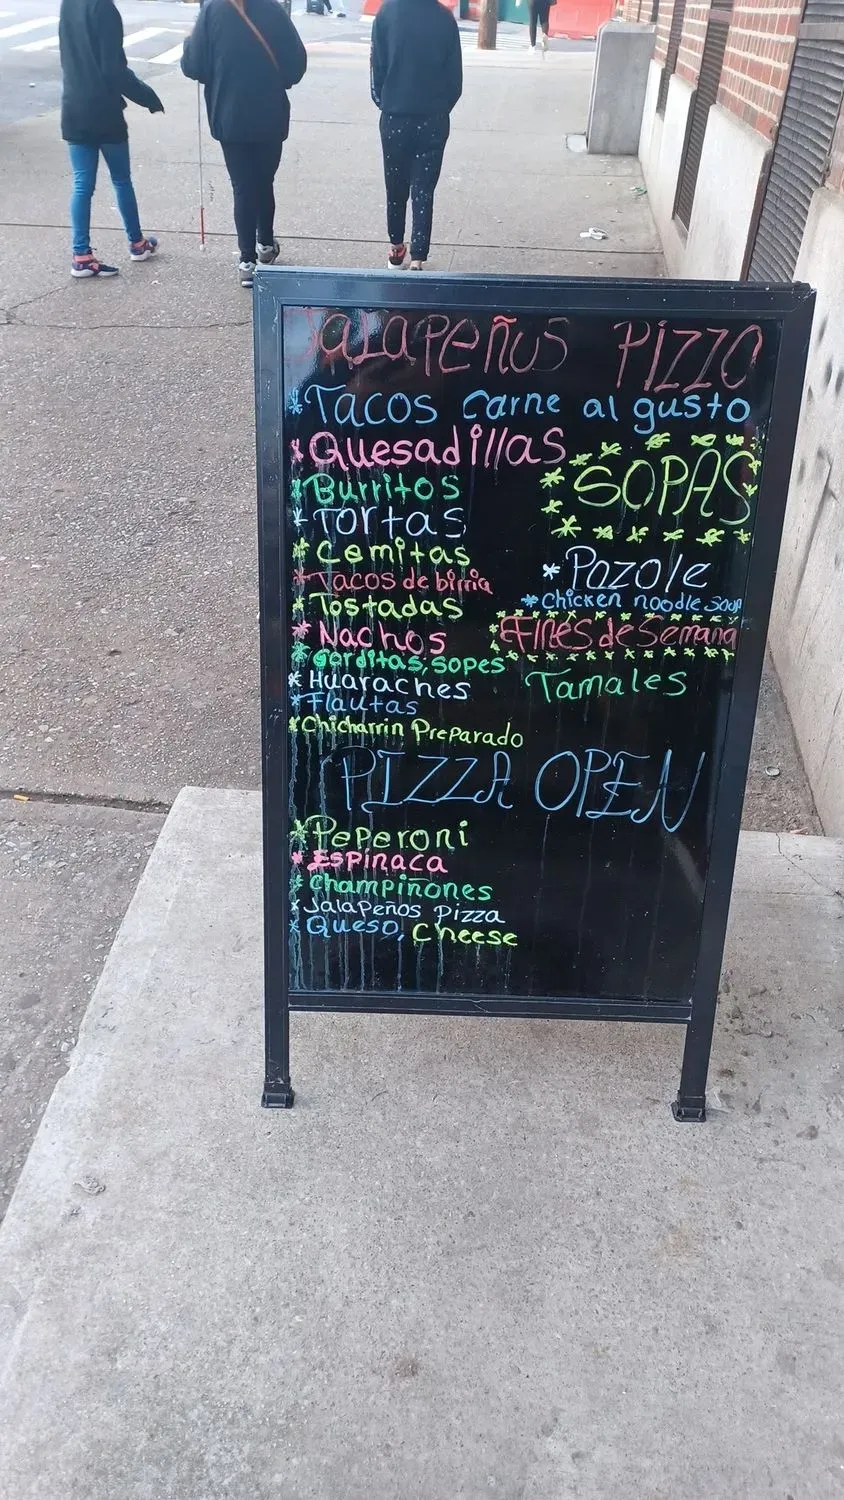 JALAPEÑOS PIZZO
*Tacos carne al gusto
*Quesadillas
*Burritos
*Tortas
*Cemitas
*Tacos de birria
*Tostadas
*Nachos
*Gorditas, sopes
*Huaraches
*Flautas
*Chicharrin Preparado
*SOPAS*
*Pozole
*Chicken noodle soup
*Fines de Semana*
Tamales
PIZZA OPEN
*Peperoni
*Espinaca
*Champiñones
*Jalapeños pizza
*Queso, Cheese